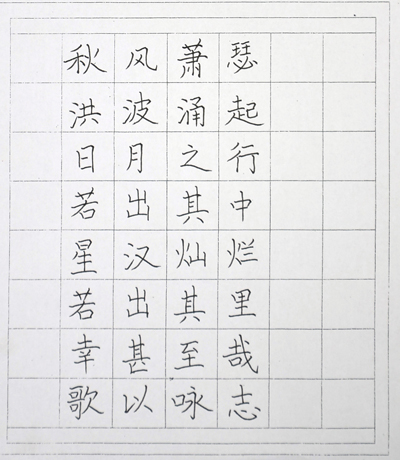 秋风萧瑟
洪波涌起
日月之行
若出其中
星汉灿烂
若出其里
幸甚至哉
歌以咏志